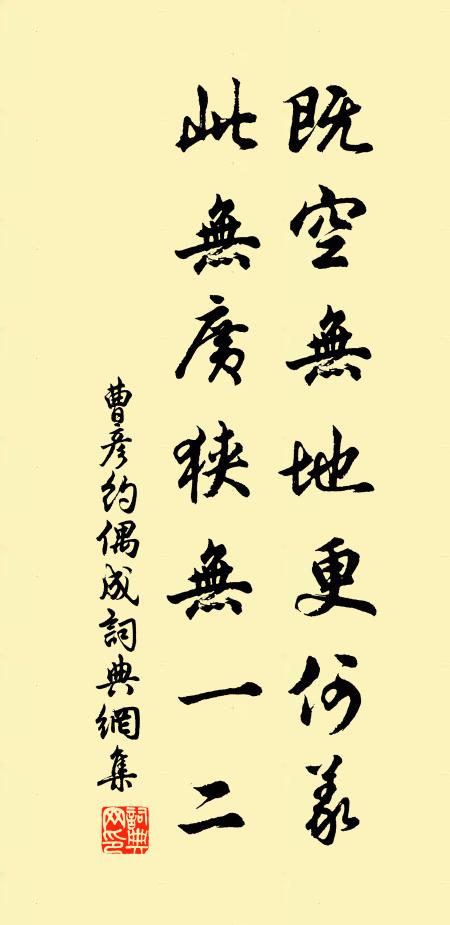 既空無地更何義
此無廣狹無一二
曹彥約偶成詞典網集
詞典网印